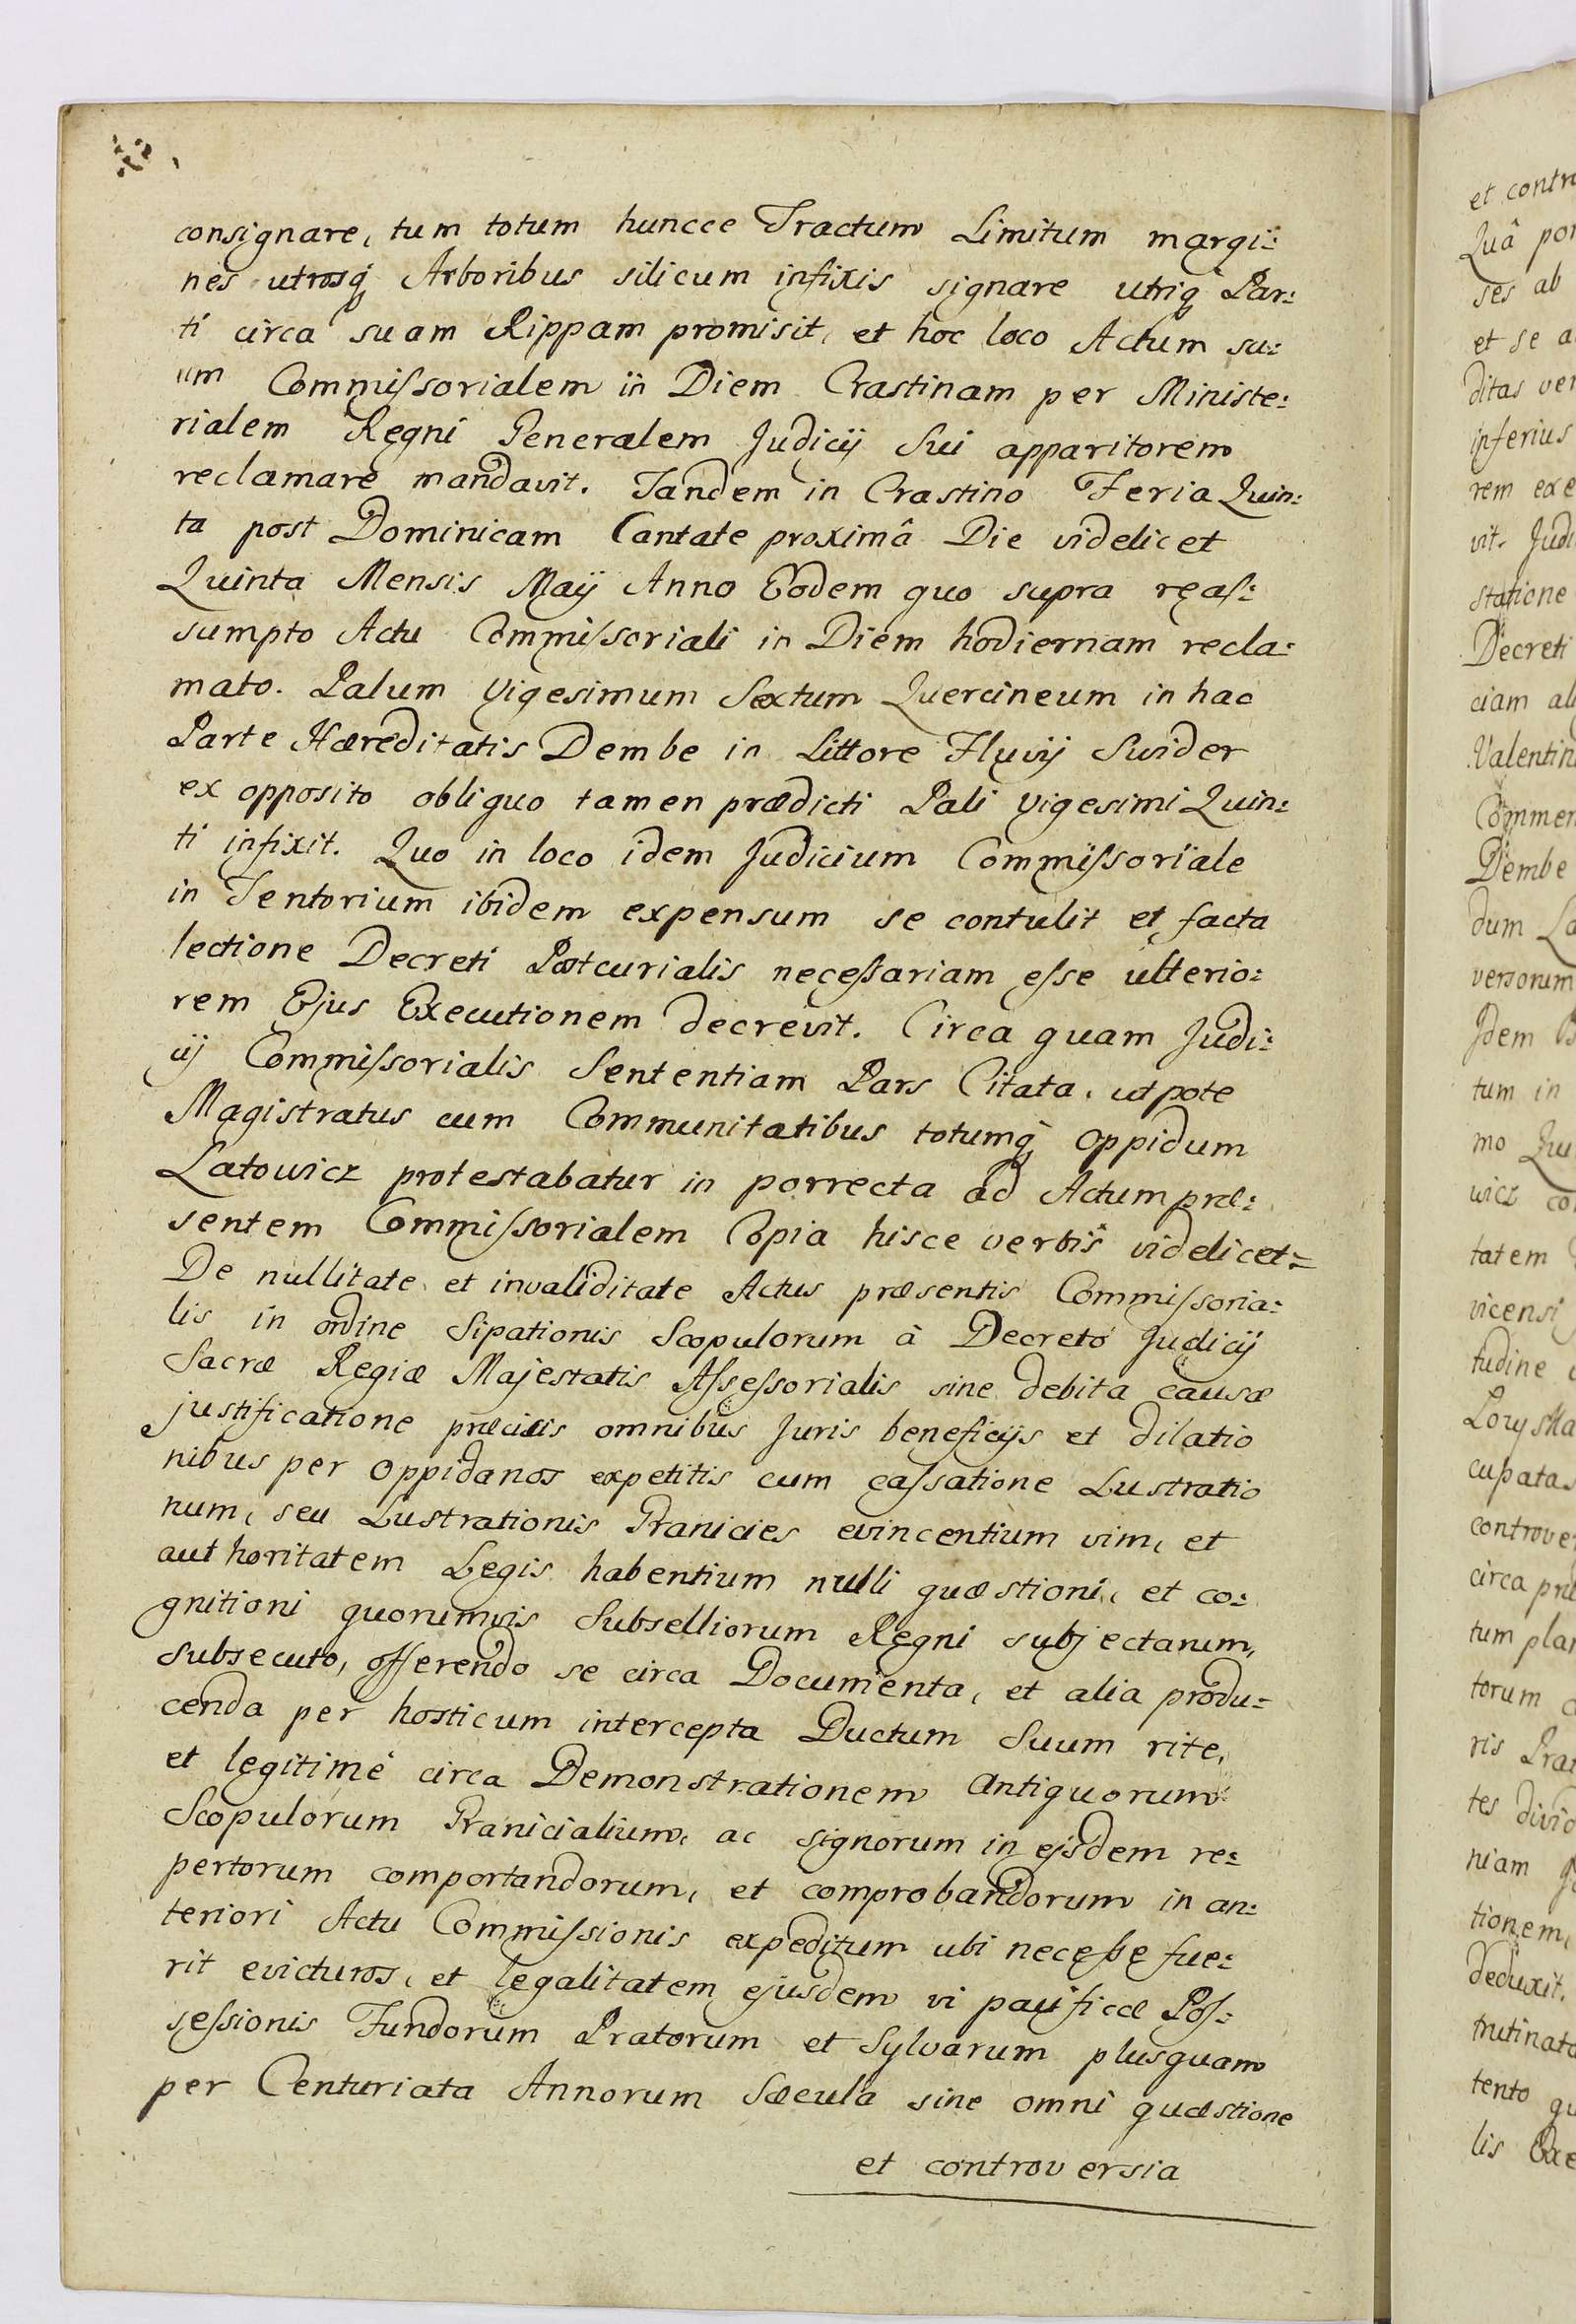 consignare, tum totum huncce Tractum Limitum margi:
nes utrosq́ Arboribus silicum infixis signare utriq́ Par:
ti circa suam Rippam promisit, et hoc loco Actum su:
um Commiſsorialem in Diem Crastinam per Ministe:
rialem Regni Generalem Judicij Sui apparitorem
reclamare mandavit. Tandem in Crastino Feria Quin:
ta post Dominicam Cantate proximâ Die videlicet
Quinta Mensis Maij Anno Eodem quo supra reaſ:
sumpto Actu Commiſsoriali in Diem hodiernam recla:
mato. Palum Vigesimum Sextum Quercineum in hac
Parte Hæreditatis Dembe in Littore Fluvij Swider
ex opposito obliquo tamen prædicti Pali Vigesimi Quin:
ti infixit. Quo in loco idem Judicium Commiſsoriale
in Tentorium ibidem expensum se contulit et facta
lectione Decreti Postcurialis neceſsariam eſse ulterio:
rem Ejus Executionem decrevit. Circa quam Judi:
cij Commiſsorialis Sententiam Pars Citata, utpote
Magistratus cum Communitatibus totumq́ Oppidum
Latowicz protestabatur in porrecta ad Actum præ:
sentem Commiſsorialem Copia hisce verbis videlicet=
De nullitate et invaliditate Actus præsentis Commiſsoria:
lis in ordine Sipationis Scopulorum à Decreto Judicij
Sacræ Regiæ Majestatis Aſseſsorialis sine debita causæ
justificatione præcisis omnibus Juris beneficijs et dilatio
nibus per Oppidanos expetitis cum caſsatione Lustratio
num, seu Lustrationis Granicies evincentium vim, et
authoritatem Legis habentium nulli quæstioni, et co:
gnitioni quorumvis Subselliorum Regni subjectarum,
subsecuto, offerendo se circa Documenta, et alia produ=
cenda per hosticum intercepta Ductum Suum rite,
et legitimé circa Demonstrationem Antiquorum
Scopulorum Granicialium, ac signorum in ejsdem re:
pertorum comportandorum, et comprobandorum in an:
teriori Actu Commiſsionis expeditum ubi neceſse fue:
rit evicturos, et legalitatem ejusdem vi pacificæ Poſ:
seſsionis Fundorum Pratorum et Sylvarum plusquam
per Centuriata Annorum Sæcula sine omni quæstione
et controversia
et contro
Quâ por
ses ab
et se a
ditas ver
inferius
rem exe
vit. Judi
statione
Decreti
ciam al
Valentin
Commen
Dembe
dum La
versorum
Jdem
tum in
mo Qu
wicz co
tatem
vicensi
tudine
cupatas
controver
circa præ
tum plan
torum
ris Pra
tes divid
niam
tionem,
deduxit.
trutinato
tento qu
lis Exe